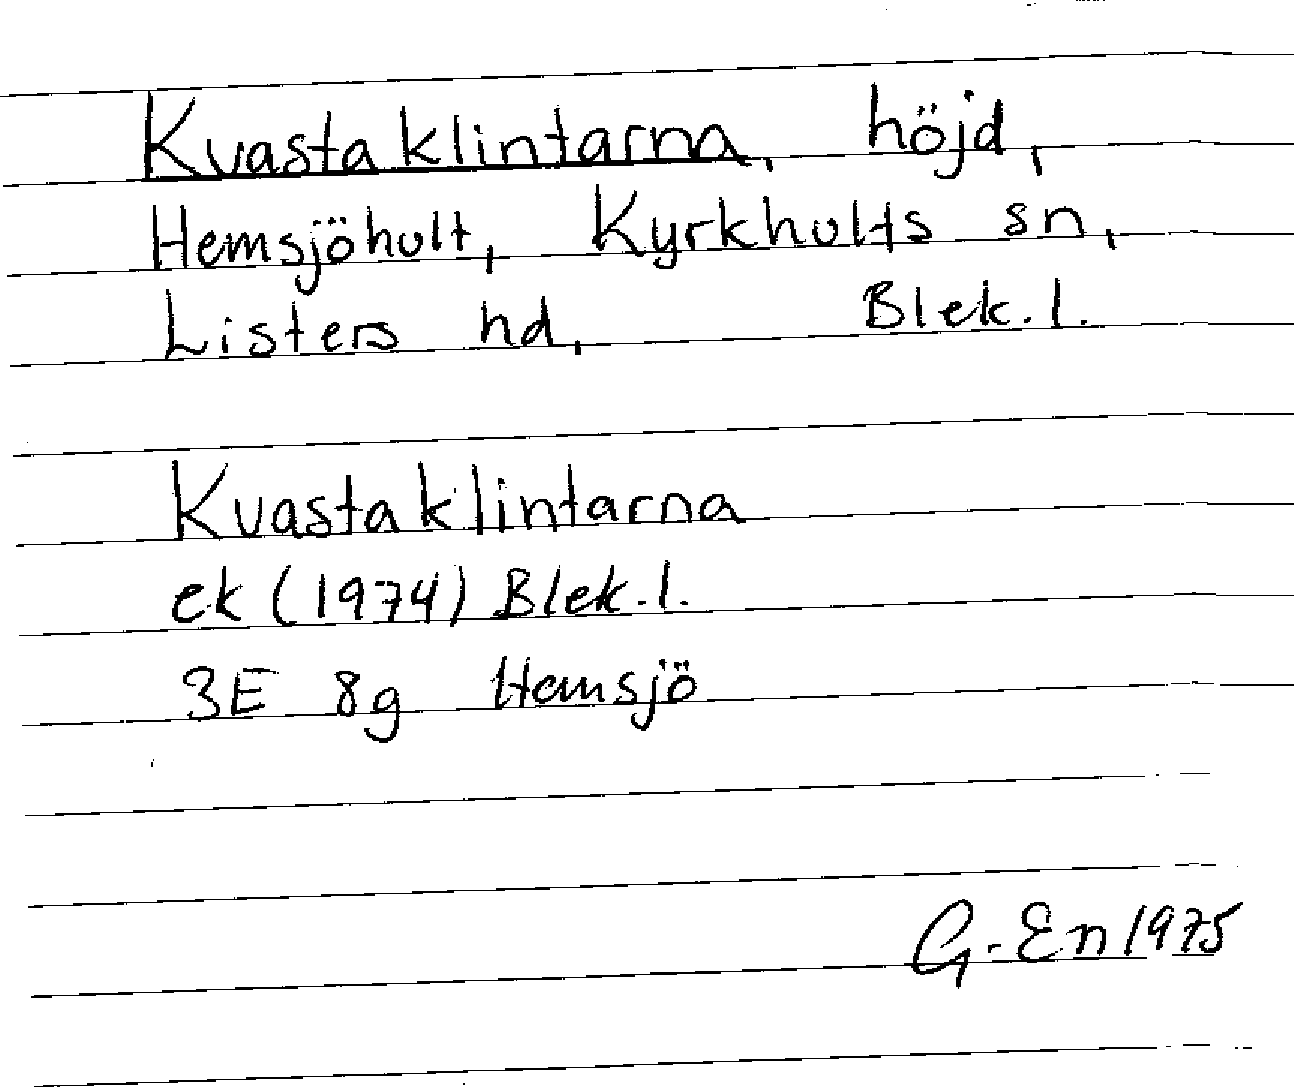 Kvastaklintarna, höjd,
Hemsjöhult, Kyrkhults sn,
Listers hd, Blek. l.
Kvastaklintarna
ek (1974) Blek. l.
3E 8g Hemsjö
G. En 1975